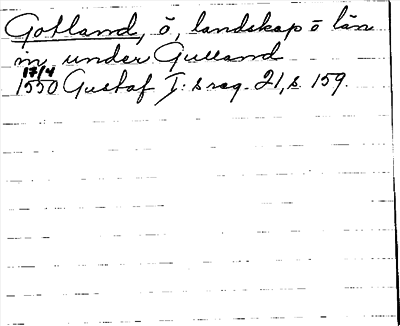 Gotland, ö, landskap o län
in under Gulland
17/4
1550 Gustaf I:s reg. 21, s. 159.